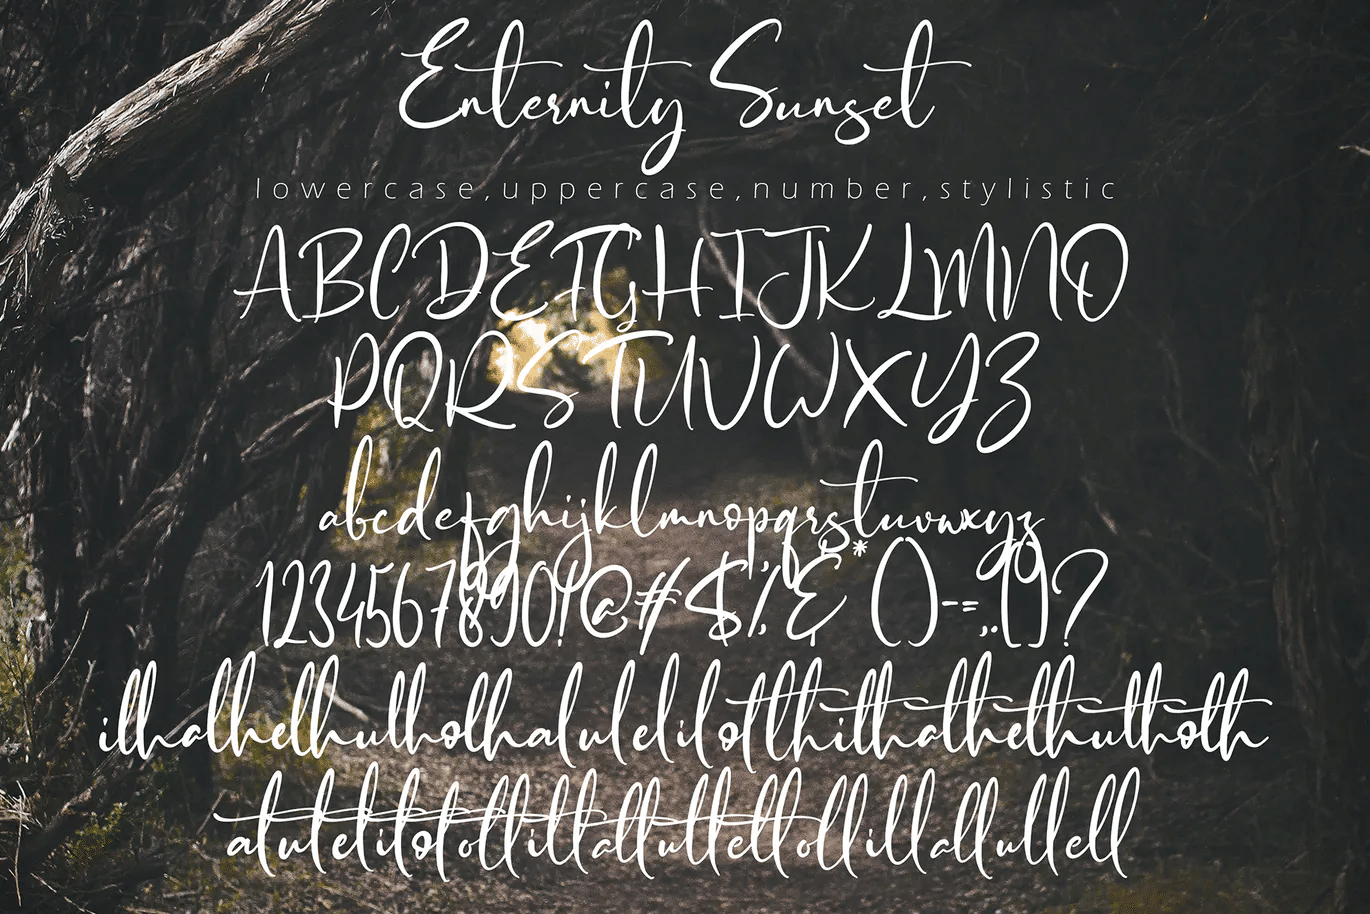 Enternity Sunset
lowercase,uppercase,number,stylistic
ABCDEFGHIJKLMNO
PQRSTUVWXYZ
abcdefghijklmnopqrstuvwxyz
1234567890!@#$%&*()-=;,.{}?